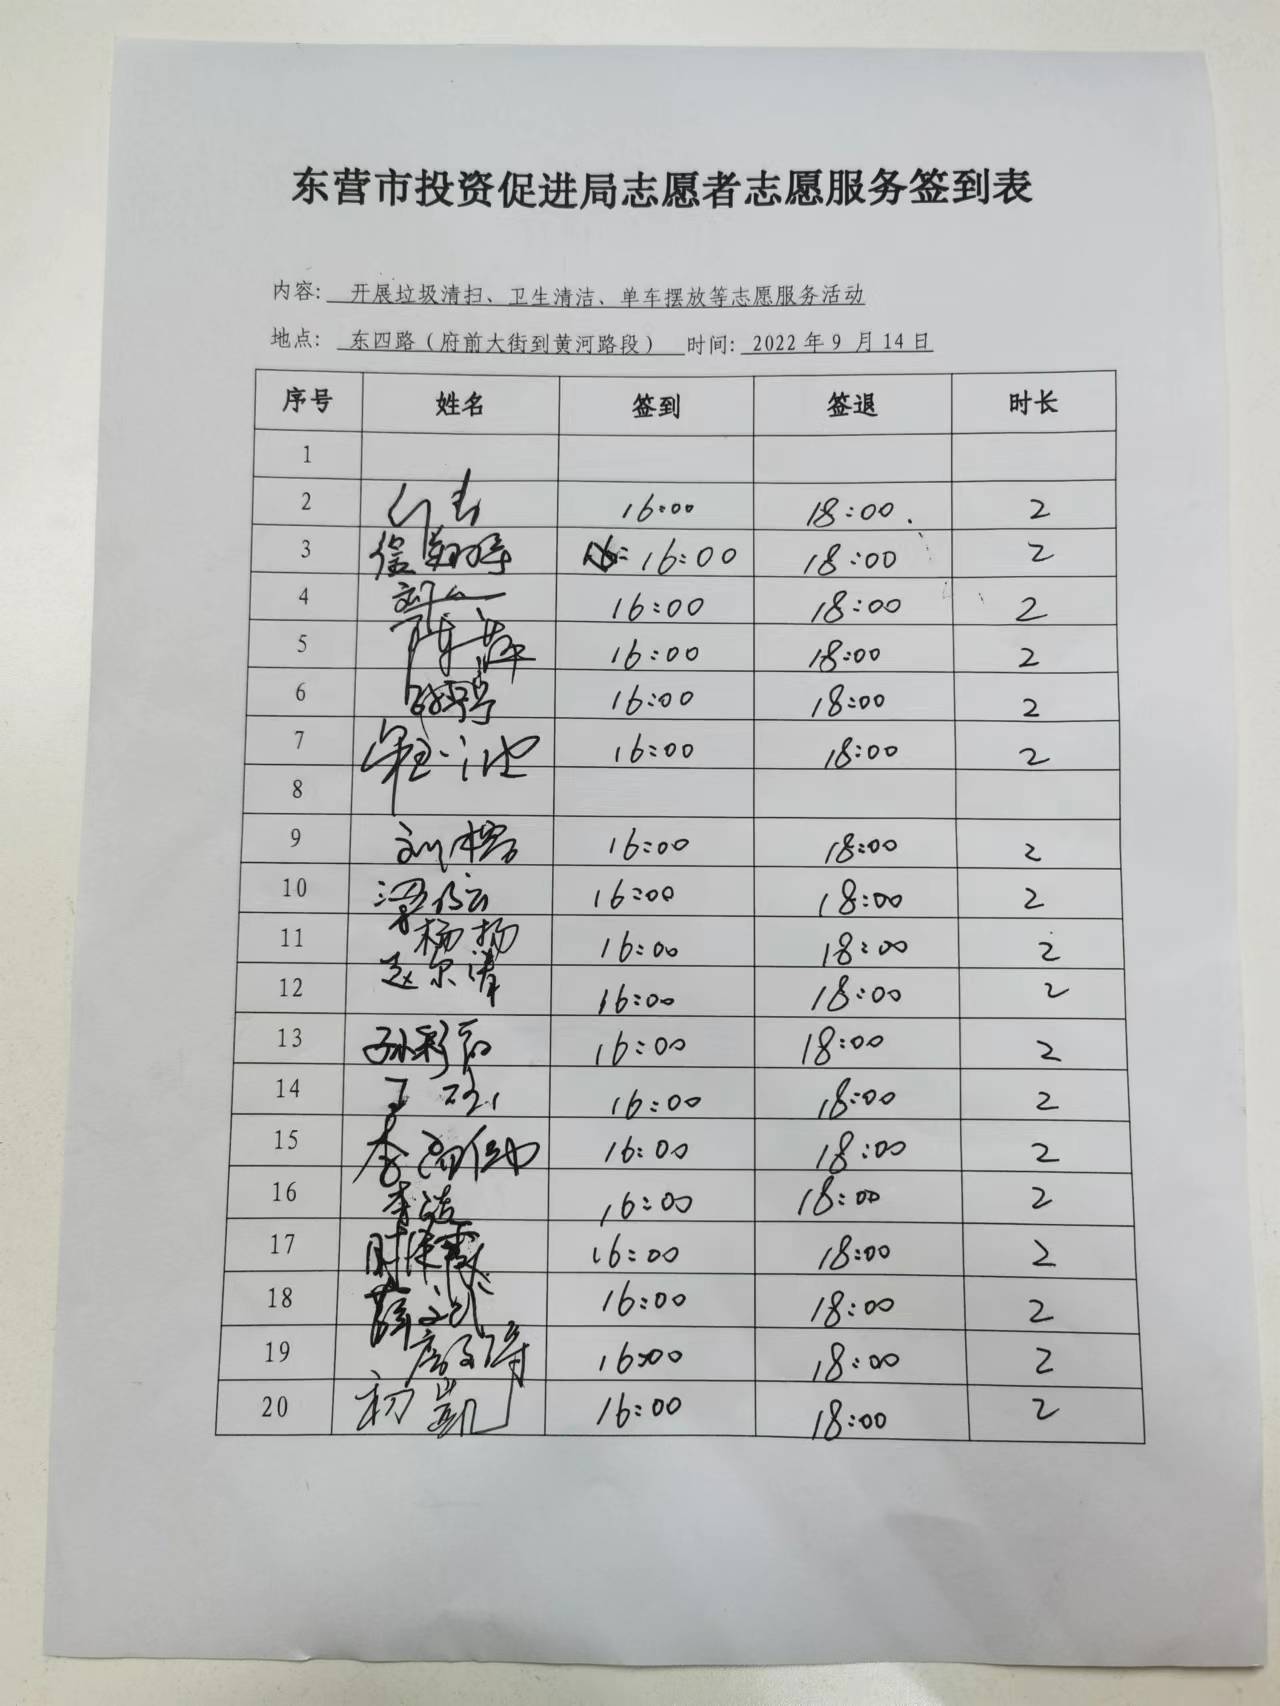 东营市投资促进局志愿者志愿服务签到表
内容: 开展垃圾清扫、卫生清洁、单车摆放等志愿服务活动
地点: 东四路（府前大街到黄河路段） 时间: 2022 年 9 月 14 日
序号 姓名 签到 签退 时长
1
2 16:00 18:00 2
3 16:00 18:00 2
4 16:00 18:00 2
5 陈萍 16:00 18:00 2
6 16:00 18:00 2
7 16:00 18:00 2
8
9 16:00 18:00 2
10 16:00 18:00 2
11 杨扬 16:00 18:00 2
12 赵尔清 16:00 18:00 2
13 16:00 18:00 2
14 16:00 18:00 2
15 16:00 18:00 2
16 李洁 16:00 18:00 2
17 16:00 18:00 2
18 16:00 18:00 2
19 16:00 18:00 2
20 初凯 16:00 18:00 2